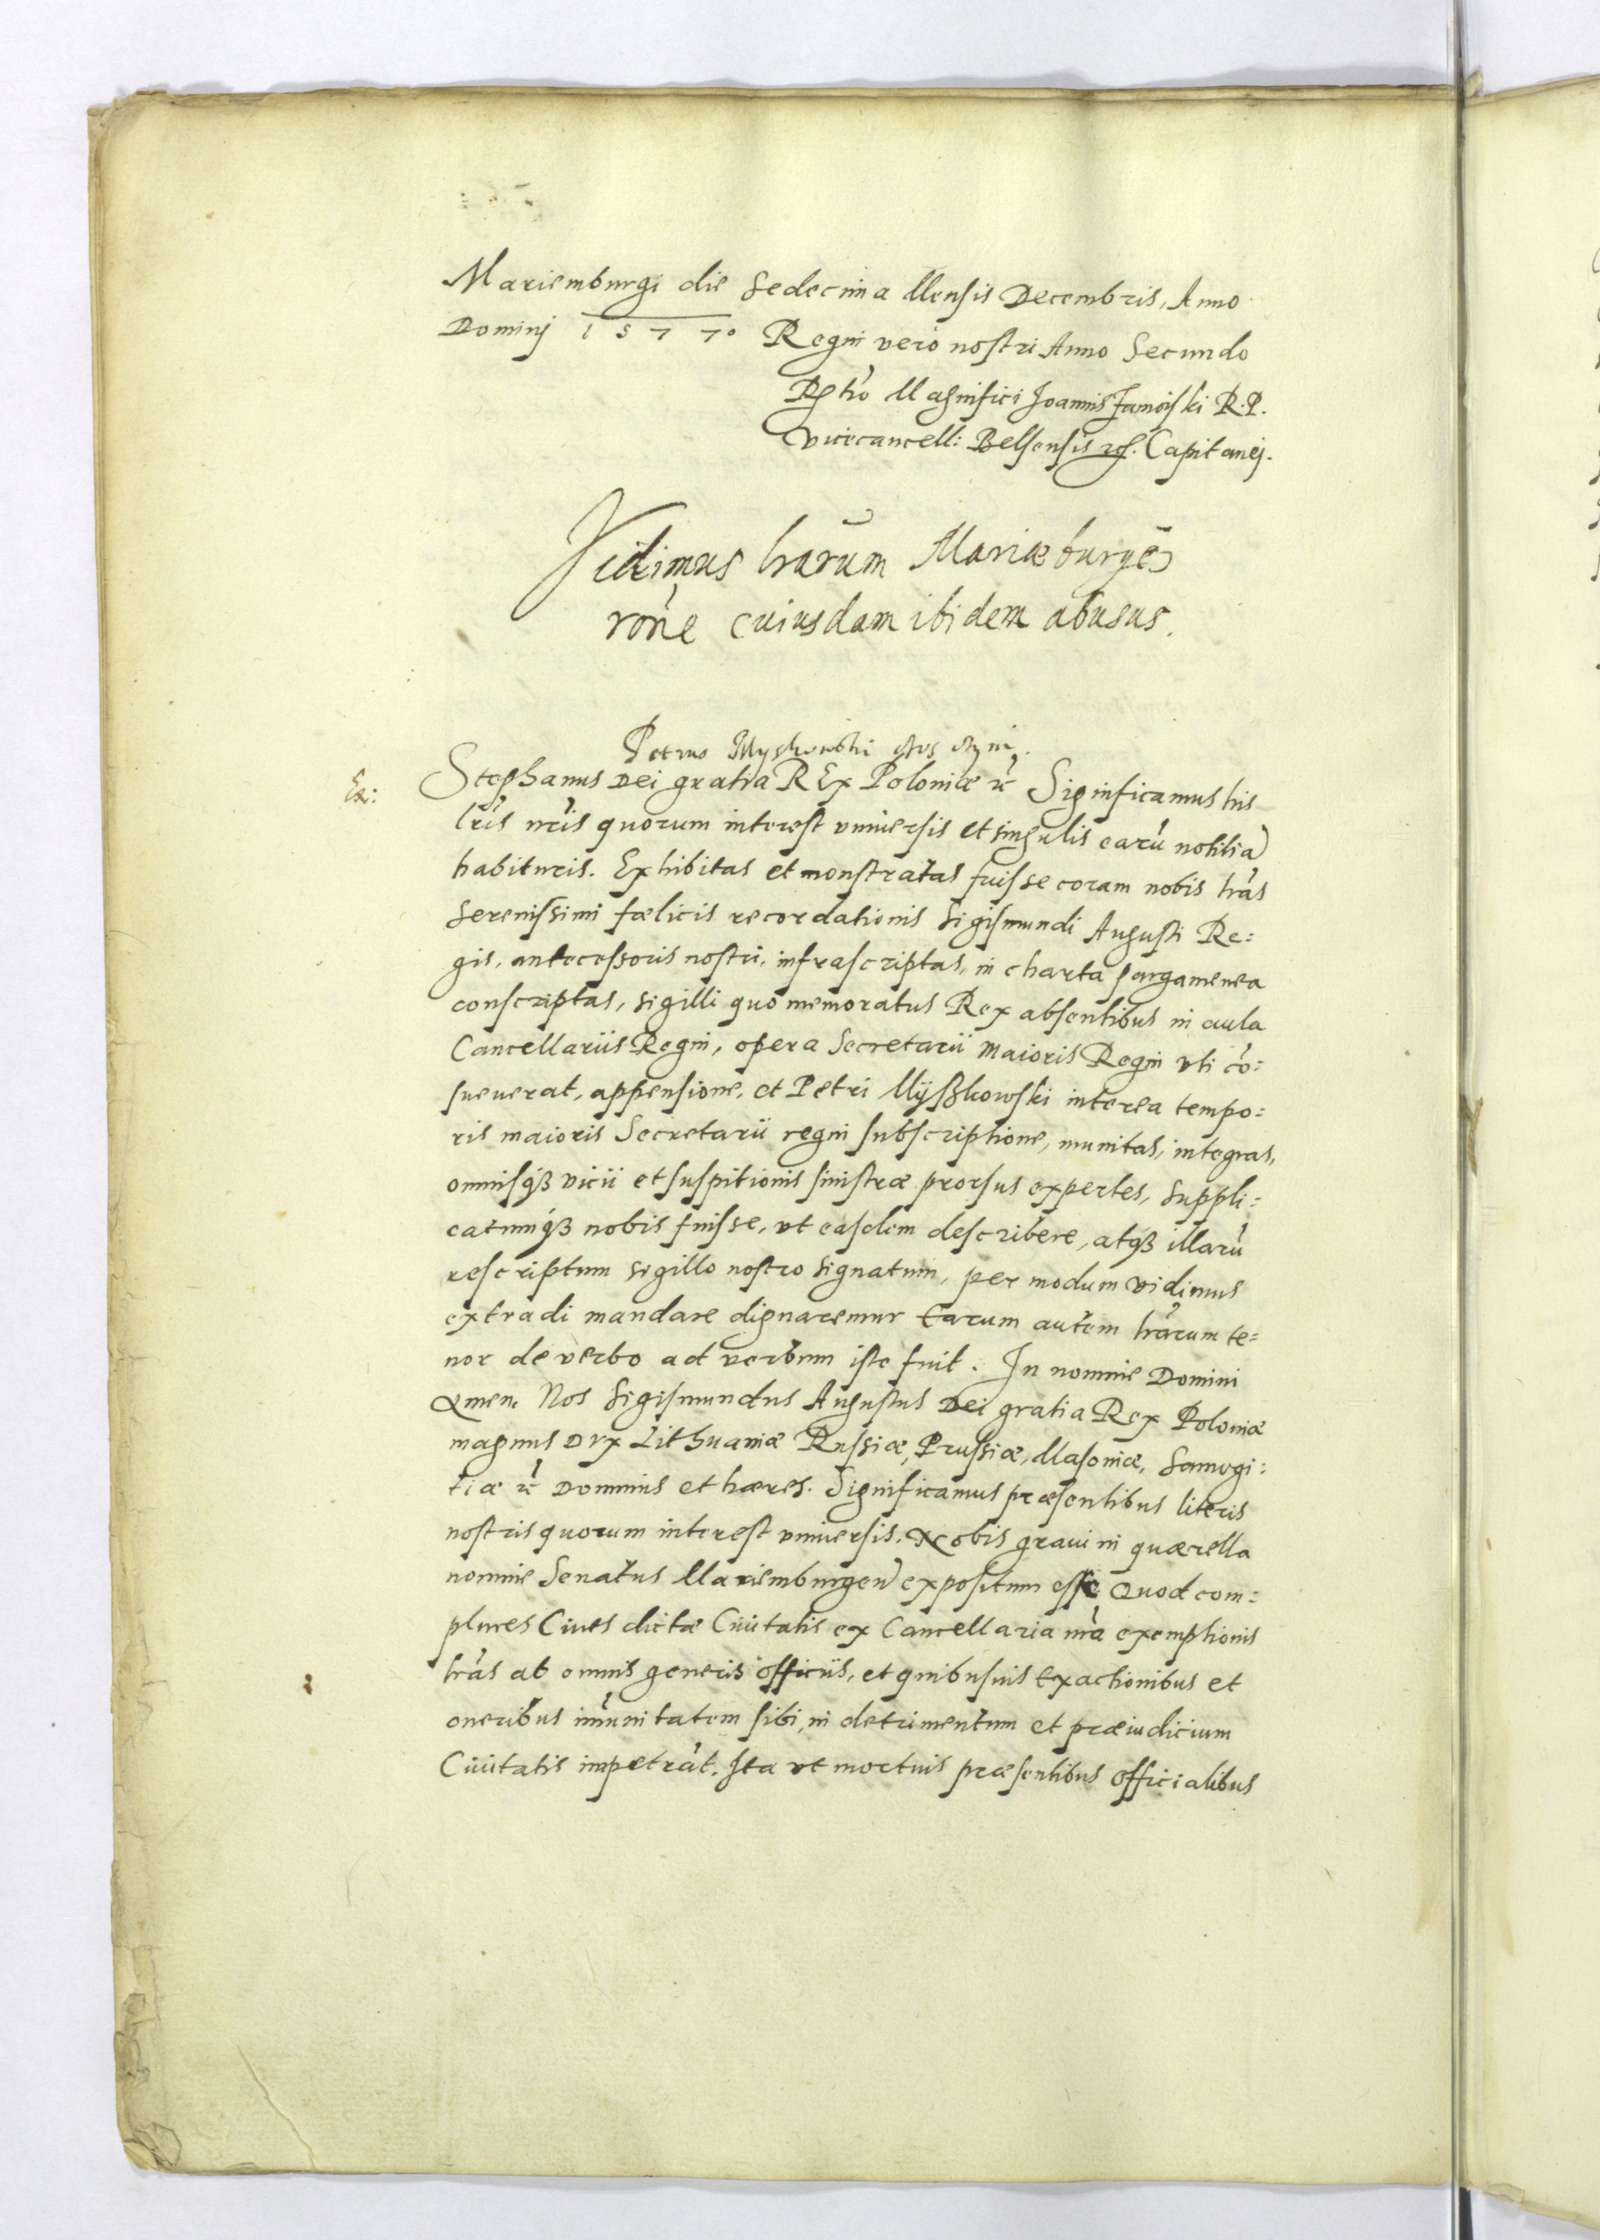 Mariemburgi die Sedecima Mensis Decembris, Anno
Dominj 1577o Regni vero nostri Anno Secundo
Rtio Magnifici Joannis Zamoiski R.P.
Vicecancell: Belsensis etc. Capitanei.
Vidimus lrarum Mariæburgen
rone cuiusdam ibidem abusus.
Petrus Myskowski
Ex:
Stephanus Dei gratia REx Poloniæ etc Significamus his
lris nris quorum interest vniuersis et singulis earu notitia
habituris. Exhibitas et monstratas fuisse coram nobis lras
Serenissimi fælicis recordationis Sigismundi Augusti Re:
gis, antecessoris nostri, infrascriptas, in charta pargamenea
conscriptas, sigilli quo memoratus Rex absentibus in aula
Cancellariis Regni, opera Secretarii Maioris Regni vti co:
sueuerat, appensione, et Petri Myßkowski interea tempo:
ris maioris Secretarii regni subscriptione, munitas, integras,
omnisqȝ vicii et suspitionis sinistræ prorsus expertes, Suppli:
catumqȝ nobis fuisse, vt easdem describere, atqȝ illaru
rescriptum sigillo nostro signatum, per modum vidimus
extradi mandare dignaremur Earum autem lrarum te=
nor de verbo ad verbum iste fuit. In nomine Domini
Amen. Nos Sigismundus Augustus Dei gratia Rex Poloniæ
magnus Dux Lithuaniæ Russiæ, Prussiæ, Masoniæ, Samogi:
tiæ etc Dominus et hæres. Significamus præsentibus literis
nostris quorum interest vniuersis. Nobis graui in quærella
nomine Senatus Mariemburgen expositum esse Quod com:
plures Ciues dictæ Ciuitatis ex Cancellaria nra exemptionis
lras ab omnis generis officiis, et quibusuis Exactionibus et
oneribus imunitatem sibi, in detrimentum et præiudicium
Ciuitatis impetrat. Ita vt mortuis præsentibus officialibus